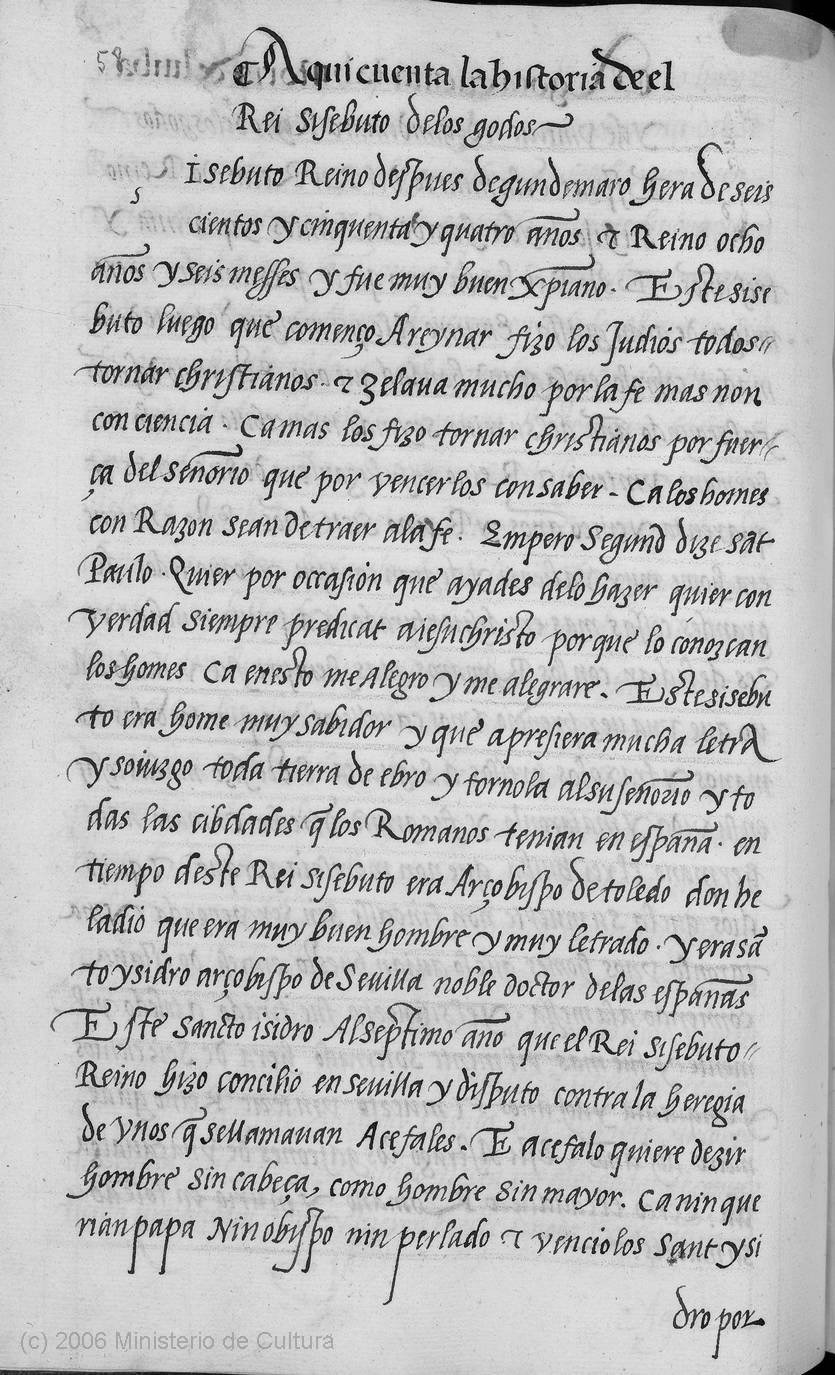 58
¶ Aqui cuenta la historia de el
Rei sisebuto delos godos
s
Isebuto Reino despues de gundemaro hera de seis
cientos y cinquenta y quatro años ⁊ Reino ocho
años y seis messes y fue muy buen xp̄iano. Este sise
buto luego que començo A reynar fizo los Judios todos
tornar christianos. ⁊ zelaua mucho por la fe mas non
con ciencia. Ca mas los fizo tornar christianos por fuer
ça del señorio que por vencerlos con saber. Ca los homes
con Razon sean de traer ala fe. Empero Segund dize sāt
Paulo. Quier por occasion que ayades delo hazer quier con
verdad siempre predicat a iesuchristo por que lo conozcan
los homes Ca en esto me alegro y me alegrare. Este sisebu
to era home muy sabidor y que apresiera mucha letra
y soiuzgo toda tierra de ebro y tornola al su señorio y to
das las cibdades q̄ los Romanos tenian en españa. en
tiempo deste Rei sisebuto era Arçobispo de toledo don he
ladio que era muy buen hombre y muy letrado. y era sā
to ysidro arçobispo de Sevilla noble doctor delas españas
Este sancto isidro Al septimo año que el Rei sisebuto
Reino hizo concilio en sevilla y disputo contra la heregia
de vnos q̄ se llamauan Acefales. E acefalo quiere dezir
hombre sin cabeça, como hombre sin mayor. Ca nin que
rian papa Nin obispo nin perlado ⁊ venciolos Sant ysi
dro por
(c) 2006 Ministerio de Cultura